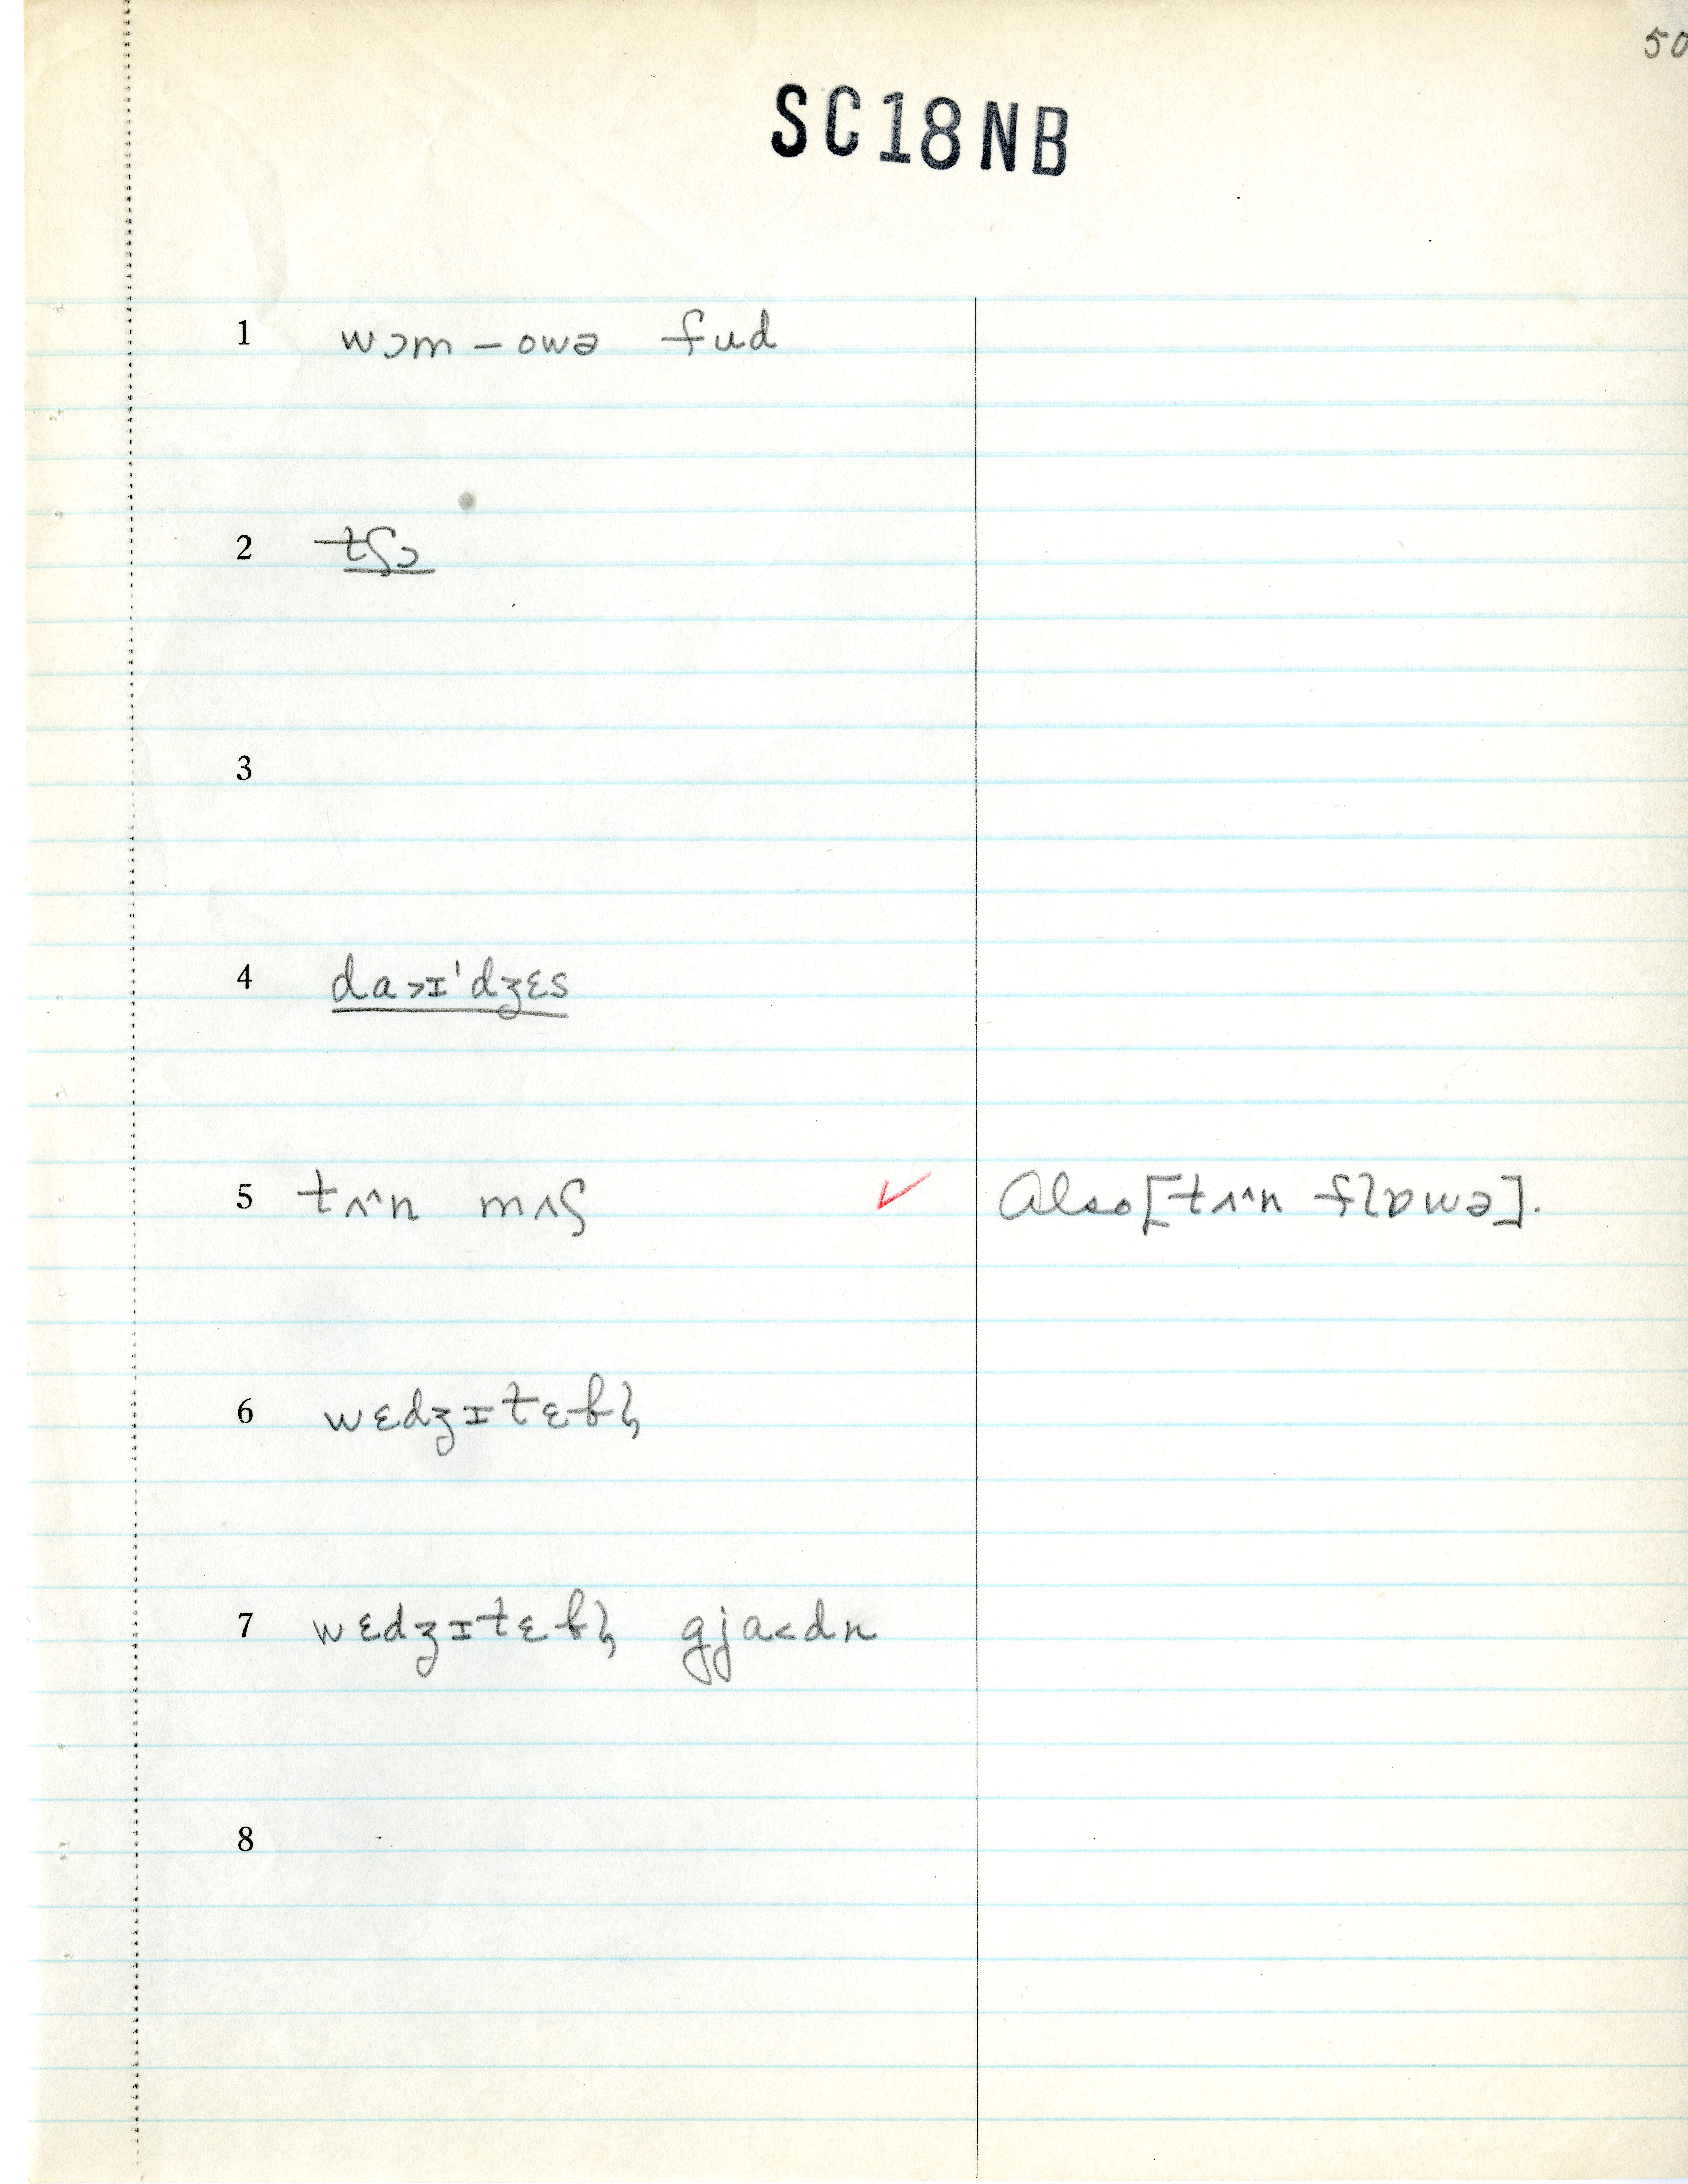 50
SC18NB
1 wɔm – owə fud
2 tʃɔ
3
4 da>ɪ'dʒɛs
5 tʌ^n mʌʃ ✓ Also [tʌ^n flɒwə].
6 wɛdʒɪtɛbl̩
7 wɛdʒɪtɛbl̩ gja<dn
8